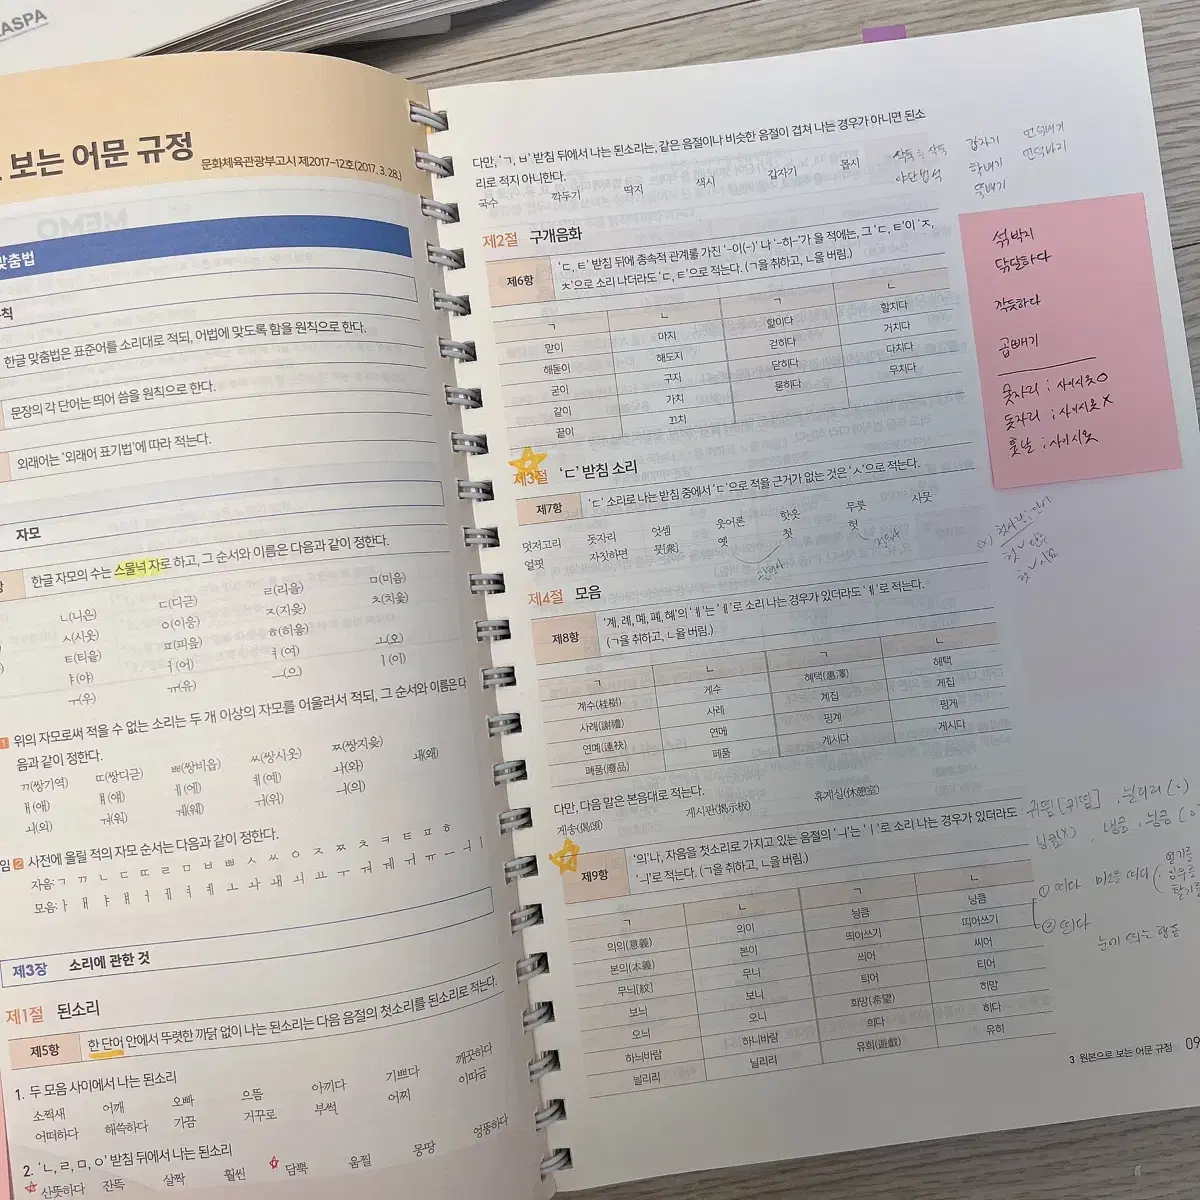 ASPA
보는 어문 규정
문화체육관광부고시 제2017-12호(2017. 3. 28.)
맞춤법
칙
한글 맞춤법은 표준어를 소리대로 적되, 어법에 맞도록 함을 원칙으로 한다.
문장의 각 단어는 띄어 씀을 원칙으로 한다.
외래어는 '외래어 표기법'에 따라 적는다.
자모
한글 자모의 수는 스물넉 자로 하고, 그 순서와 이름은 다음과 같이 정한다.
ㄴ(니은) ㄷ(디귿) ㄹ(리을) ㅁ(미음)
ㅅ(시옷) ㅇ(이응) ㅈ(지읒) ㅊ(치읓)
ㅌ(티읕) ㅍ(피읖) ㅎ(히읗)
ㅑ(야) ㅓ(어) ㅕ(여) ㅗ(오)
ㅜ(우) ㅠ(유) ㅡ(으) ㅣ(이)
1 위의 자모로써 적을 수 없는 소리는 두 개 이상의 자모를 어울러서 적되, 그 순서와 이름은 다
음과 같이 정한다.
ㄲ(쌍기역) ㄸ(쌍디귿) ㅃ(쌍비읍) ㅆ(쌍시옷) ㅉ(쌍지읒)
ㅐ(애) ㅒ(얘) ㅔ(에) ㅖ(예) ㅘ(와) ㅙ(왜)
ㅚ(외) ㅝ(워) ㅞ(웨) ㅟ(위) ㅢ(의)
임 2 사전에 올릴 적의 자모 순서는 다음과 같이 정한다.
자음: ㄱ ㄲ ㄴ ㄷ ㄸ ㄹ ㅁ ㅂ ㅃ ㅅ ㅆ ㅇ ㅈ ㅉ ㅊ ㅋ ㅌ ㅍ ㅎ
모음: ㅏ ㅐ ㅑ ㅒ ㅓ ㅔ ㅕ ㅖ ㅗ ㅘ ㅙ ㅚ ㅛ ㅜ ㅝ ㅞ ㅟ ㅠ ㅡ ㅢ ㅣ
제3장 소리에 관한 것
제1절 된소리
제5항 한 단어 안에서 뚜렷한 까닭 없이 나는 된소리는 다음 음절의 첫소리를 된소리로 적는다.
1. 두 모음 사이에서 나는 된소리
소쩍새 어깨 오빠 으뜸 아끼다 기쁘다 깨끗하다
어떠하다 해쓱하다 가끔 거꾸로 부썩 어찌 이따금
2. 'ㄴ, ㄹ, ㅁ, ㅇ' 받침 뒤에서 나는 된소리
산뜻하다 잔뜩 살짝 훨씬 담뿍 움찔 몽땅 엉뚱하다
다만, 'ㄱ, ㅂ' 받침 뒤에서 나는 된소리는, 같은 음절이나 비슷한 음절이 겹쳐 나는 경우가 아니면 된소
리로 적지 아니한다.
국수 깍두기 딱지 색시 갑자기 몹시
야단법석
갑자기 언덕배기
학배기 언덕바기
뚝배기
섞박지
닦달하다
깍듯하다
곱빼기
뭇자리 ; 사이시옷 O
돗자리 ; 사이시옷 X
훗날 ; 사이시옷
제2절 구개음화
제6항 'ㄷ, ㅌ' 받침 뒤에 종속적 관계를 가진 '-이(-)' 나 '-히-'가 올 적에는, 그 'ㄷ, ㅌ'이 'ㅈ,
ㅊ'으로 소리 나더라도 'ㄷ, ㅌ'으로 적는다. (ㄱ을 취하고, ㄴ을 버림.)
ㄱ ㄴ ㄱ ㄴ
맏이 마지 핥이다 할치다
해돋이 해도지 걷히다 거치다
굳이 구지 닫히다 다치다
같이 가치 묻히다 무치다
끝이 끄치
제3절 'ㄷ' 받침 소리
제7항 'ㄷ' 소리로 나는 받침 중에서 'ㄷ'으로 적을 근거가 없는 것은 'ㅅ'으로 적는다.
덧저고리 돗자리 엇셈 웃어른 핫옷 무릇 사뭇
얼핏 자칫하면 뭇[衆] 옛 첫 헛
제4절 모음
제8항 '계, 례, 몌, 폐, 혜'의 'ㅖ'는 'ㅔ'로 소리 나는 경우가 있더라도 'ㅖ'로 적는다.
(ㄱ을 취하고, ㄴ을 버림.)
ㄱ ㄴ ㄱ ㄴ
계수(桂樹) 게수 혜택(惠澤) 헤택
사례(謝禮) 사레 계집 게집
연몌(連袂) 연메 핑계 핑게
폐품(廢品) 페품 계시다 게시다
다만, 다음 말은 본음대로 적는다.
게송(偈頌) 게시판(揭示板) 휴게실(休憩室)
제9항 '의'나, 자음을 첫소리로 가지고 있는 음절의 'ㅢ'는 'ㅣ'로 소리 나는 경우가 있더라도
'ㅢ'로 적는다. (ㄱ을 취하고, ㄴ을 버림.)
ㄱ ㄴ ㄱ ㄴ
의의(意義) 의이 닁큼 닝큼
본의(本義) 본이 띄어쓰기 띠어쓰기
무늬[紋] 무니 씌어 씨어
보늬 보니 틔어 티어
오늬 오니 희망(希望) 히망
하늬바람 하니바람 희다 히다
늴리리 닐리리 유희(遊戱) 유히
① 띠다 미소를 띠다
② 띄다
눈에 띄는 행동
3 원본으로 보는 어문 규정 09